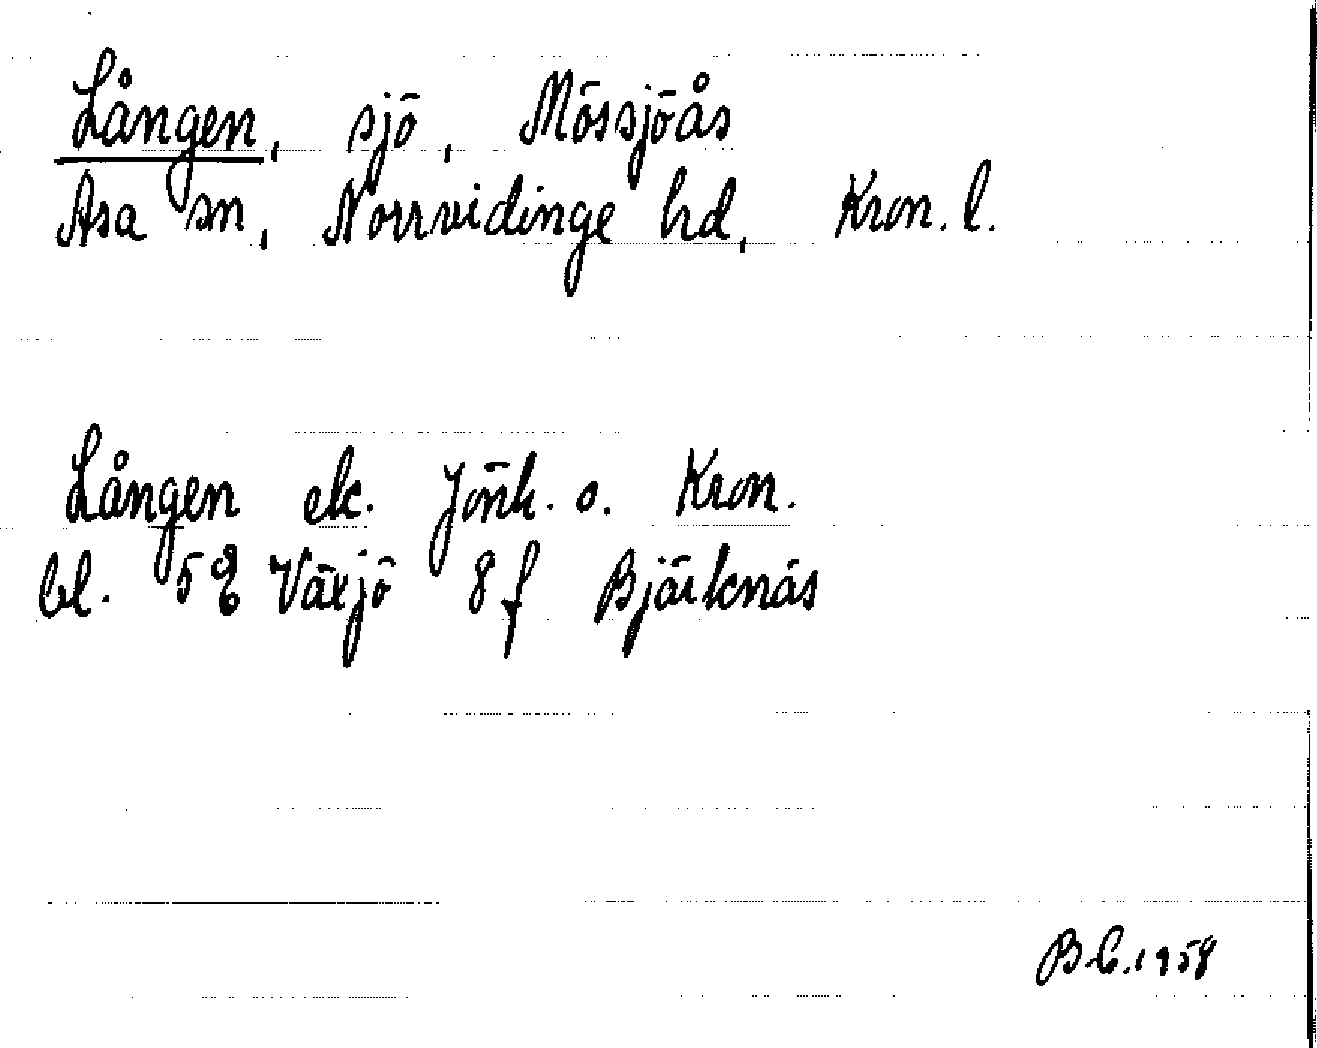 Lången, sjö, Mössjöås
Asa sn, Norrvidinge hd, Kron. l.
Lången ek. Jönk. o. Kron.
bl. 5E Växjö 8f Bjärknäs
B.C. 1958